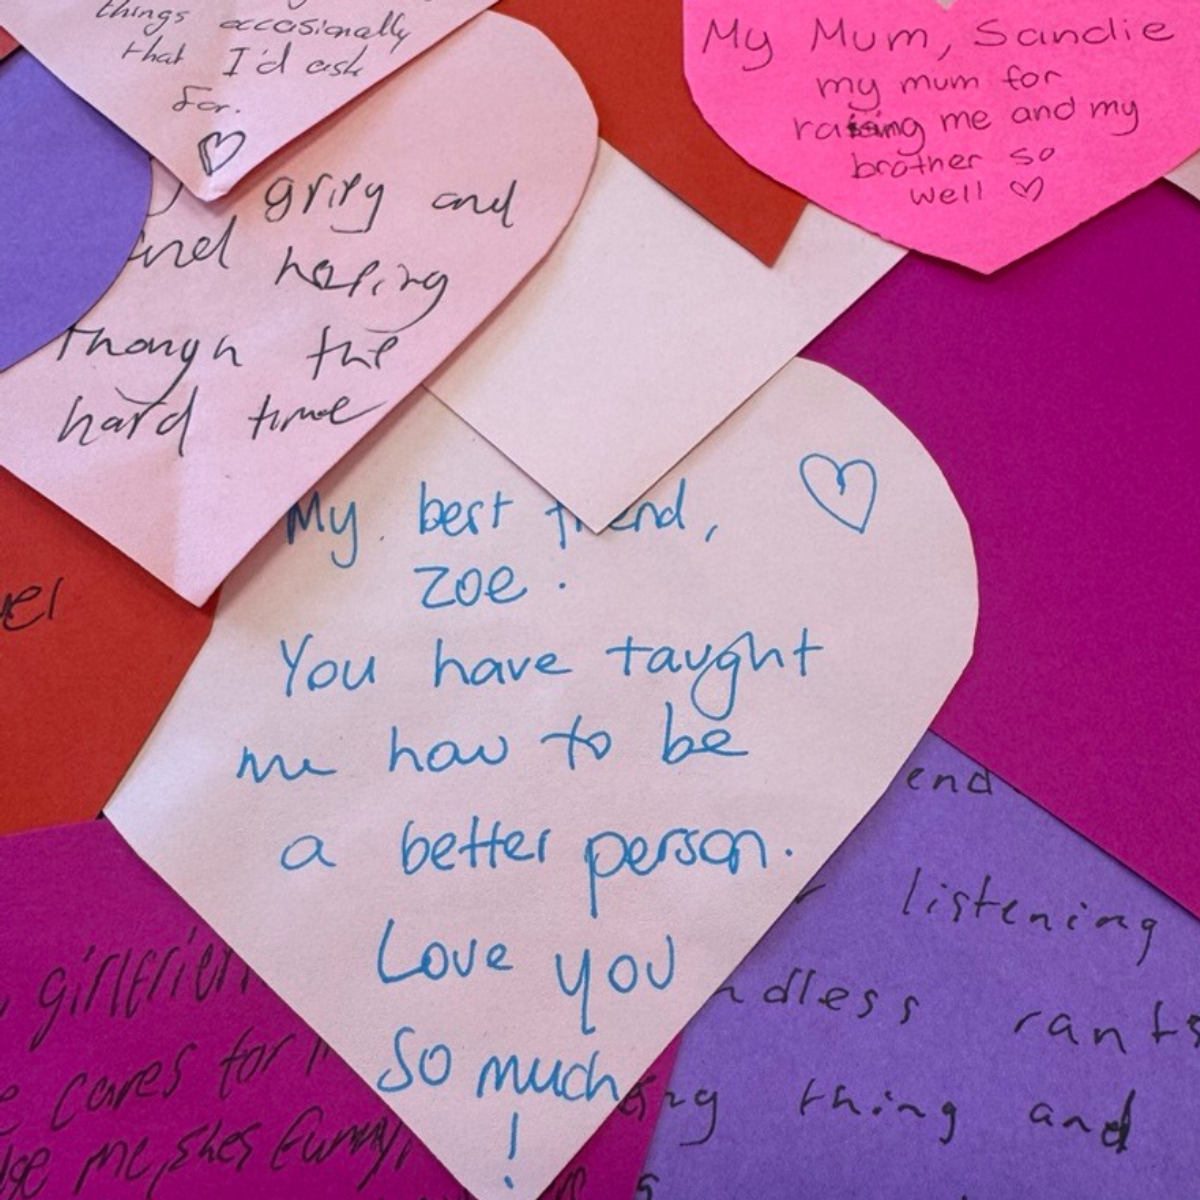 things occasionally
that I'd ask
for.
My Mum, Sandie
my mum for
raising me and my
brother so
well
and
and
the
hard time
My best friend,
Zoe.
You have taught
me how to be
a better person.
Love you
so much
!
end
listening
rants
thing and
girlfrien
cares for
me, shes funny,